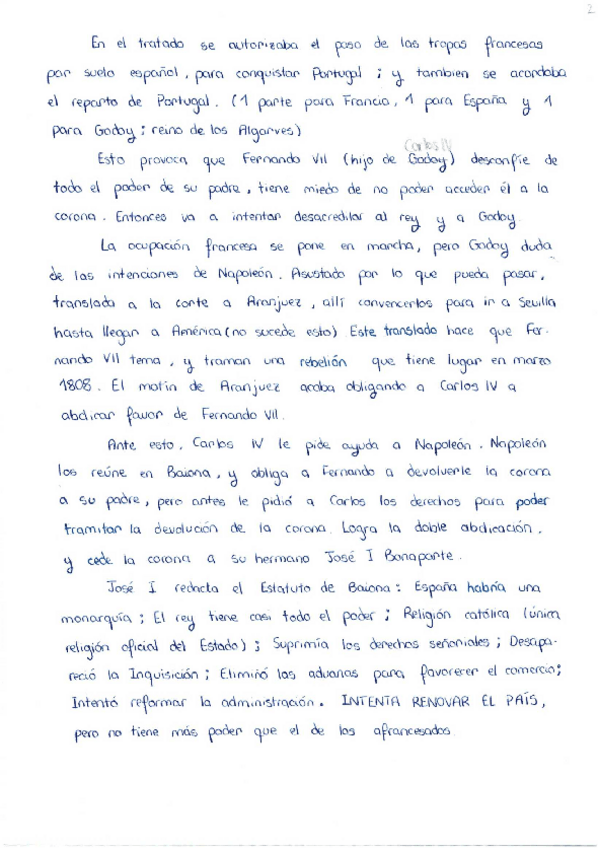 2
En el tratado se autorizaba el paso de las tropas francesas
por suelo español, para conquistar Portugal ; y tambien se acordaba
el reparto de Portugal. (1 parte para Francia, 1 para España y 1
para Godoy ; reino de los Algarves)
Carlos IV
Esto provoca que Fernando VII (hijo de Godoy) desconfíe de
todo el poder de su padre, tiene miedo de no poder acceder él a la
corona. Entonces va a intentar desacreditar al rey y a Godoy.
La ocupación francesa se pone en marcha, pero Godoy duda
de las intenciones de Napoleón. Asustado por lo que pueda pasar,
translada a la corte a Aranjuez, allí convencerlos para ir a Sevilla
hasta llegar a América (no sucede esto). Este translado hace que Fer-
nando VII tema, y traman una rebelión que tiene lugar en marzo
1808. El motín de Aranjuez acaba obligando a Carlos IV a
abdicar favor de Fernando VII.
Ante esto, Carlos IV le pide ayuda a Napoleón. Napoleón
los reúne en Baiona, y obliga a Fernando a devolverle la corona
a su padre, pero antes le pidió a Carlos los derechos para poder
tramitar la devolución de la corona. Logra la doble abdicación,
y cede la corona a su hermano José I Bonaparte.
José I redacta el Estatuto de Baiona : España habría una
monarquía ; El rey tiene casi todo el poder ; Religión católica (única
religión oficial del Estado) ; Suprimía los derechos señoriales ; Desapa-
reció la Inquisición ; Eliminó las aduanas para favorerer el comercio;
Intentó reformar la administración. INTENTA RENOVAR EL PAÍS,
pero no tiene más poder que el de los afrancesados